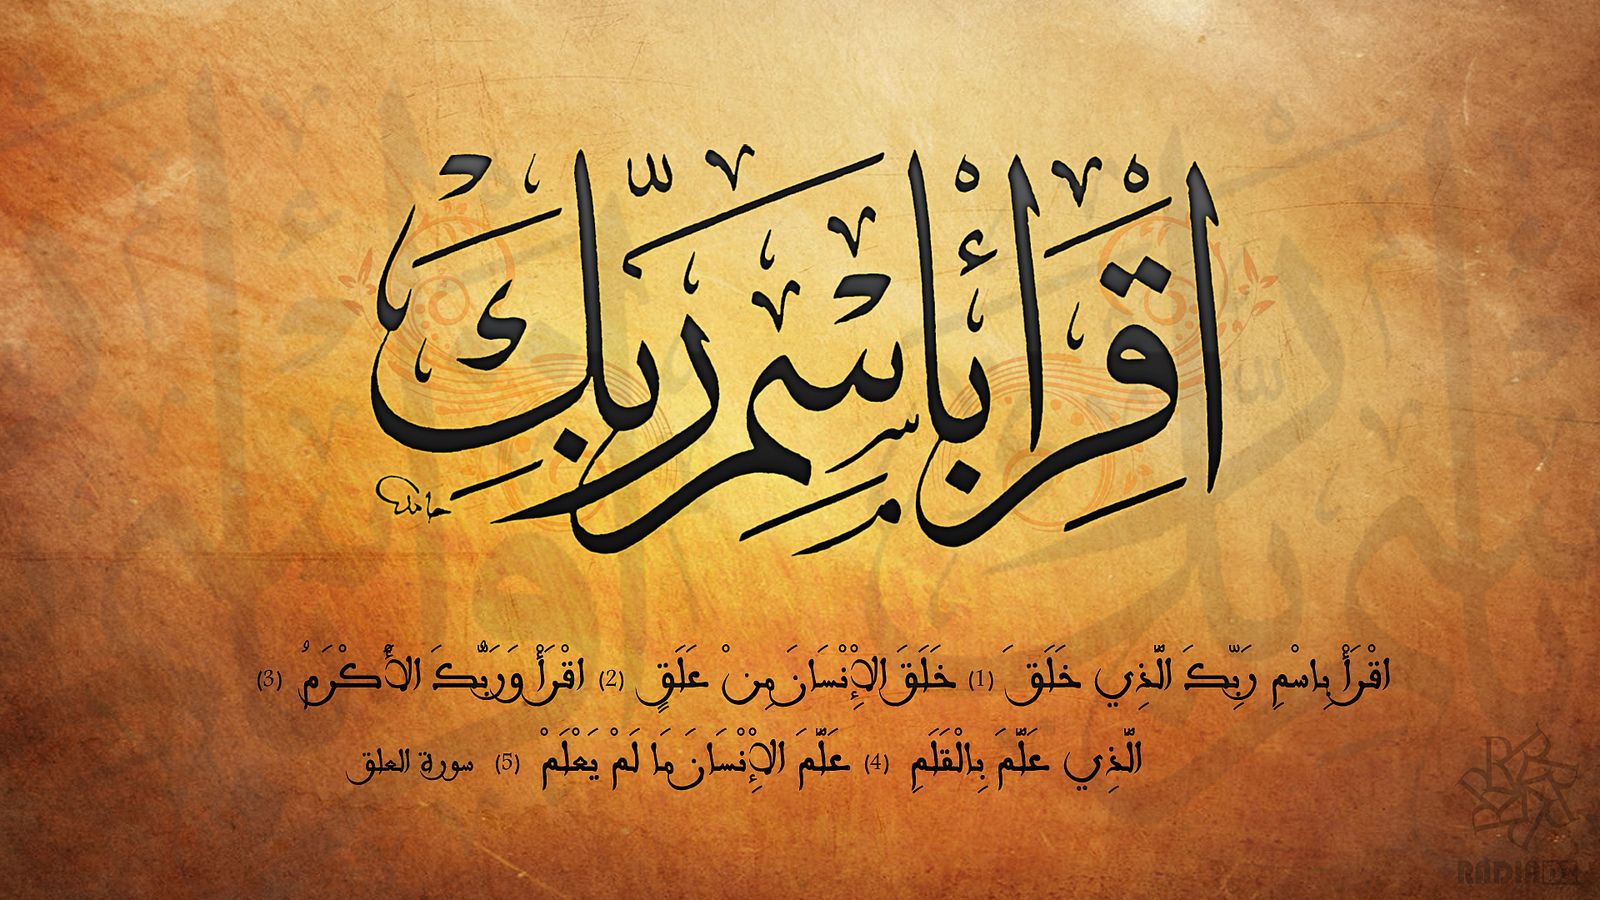 اقْرَأْ بِاسْمِ رَبِّكَ
حامد
اقْرَأْ بِاسْمِ رَبِّكَ الَّذِي خَلَقَ (1) خَلَقَ الْإِنْسَانَ مِنْ عَلَقٍ (2) اقْرَأْ وَرَبُّكَ الْأَكْرَمُ (3)
الَّذِي عَلَّمَ بِالْقَلَمِ (4) عَلَّمَ الْإِنْسَانَ مَا لَمْ يَعْلَمْ (5) سورة العلق